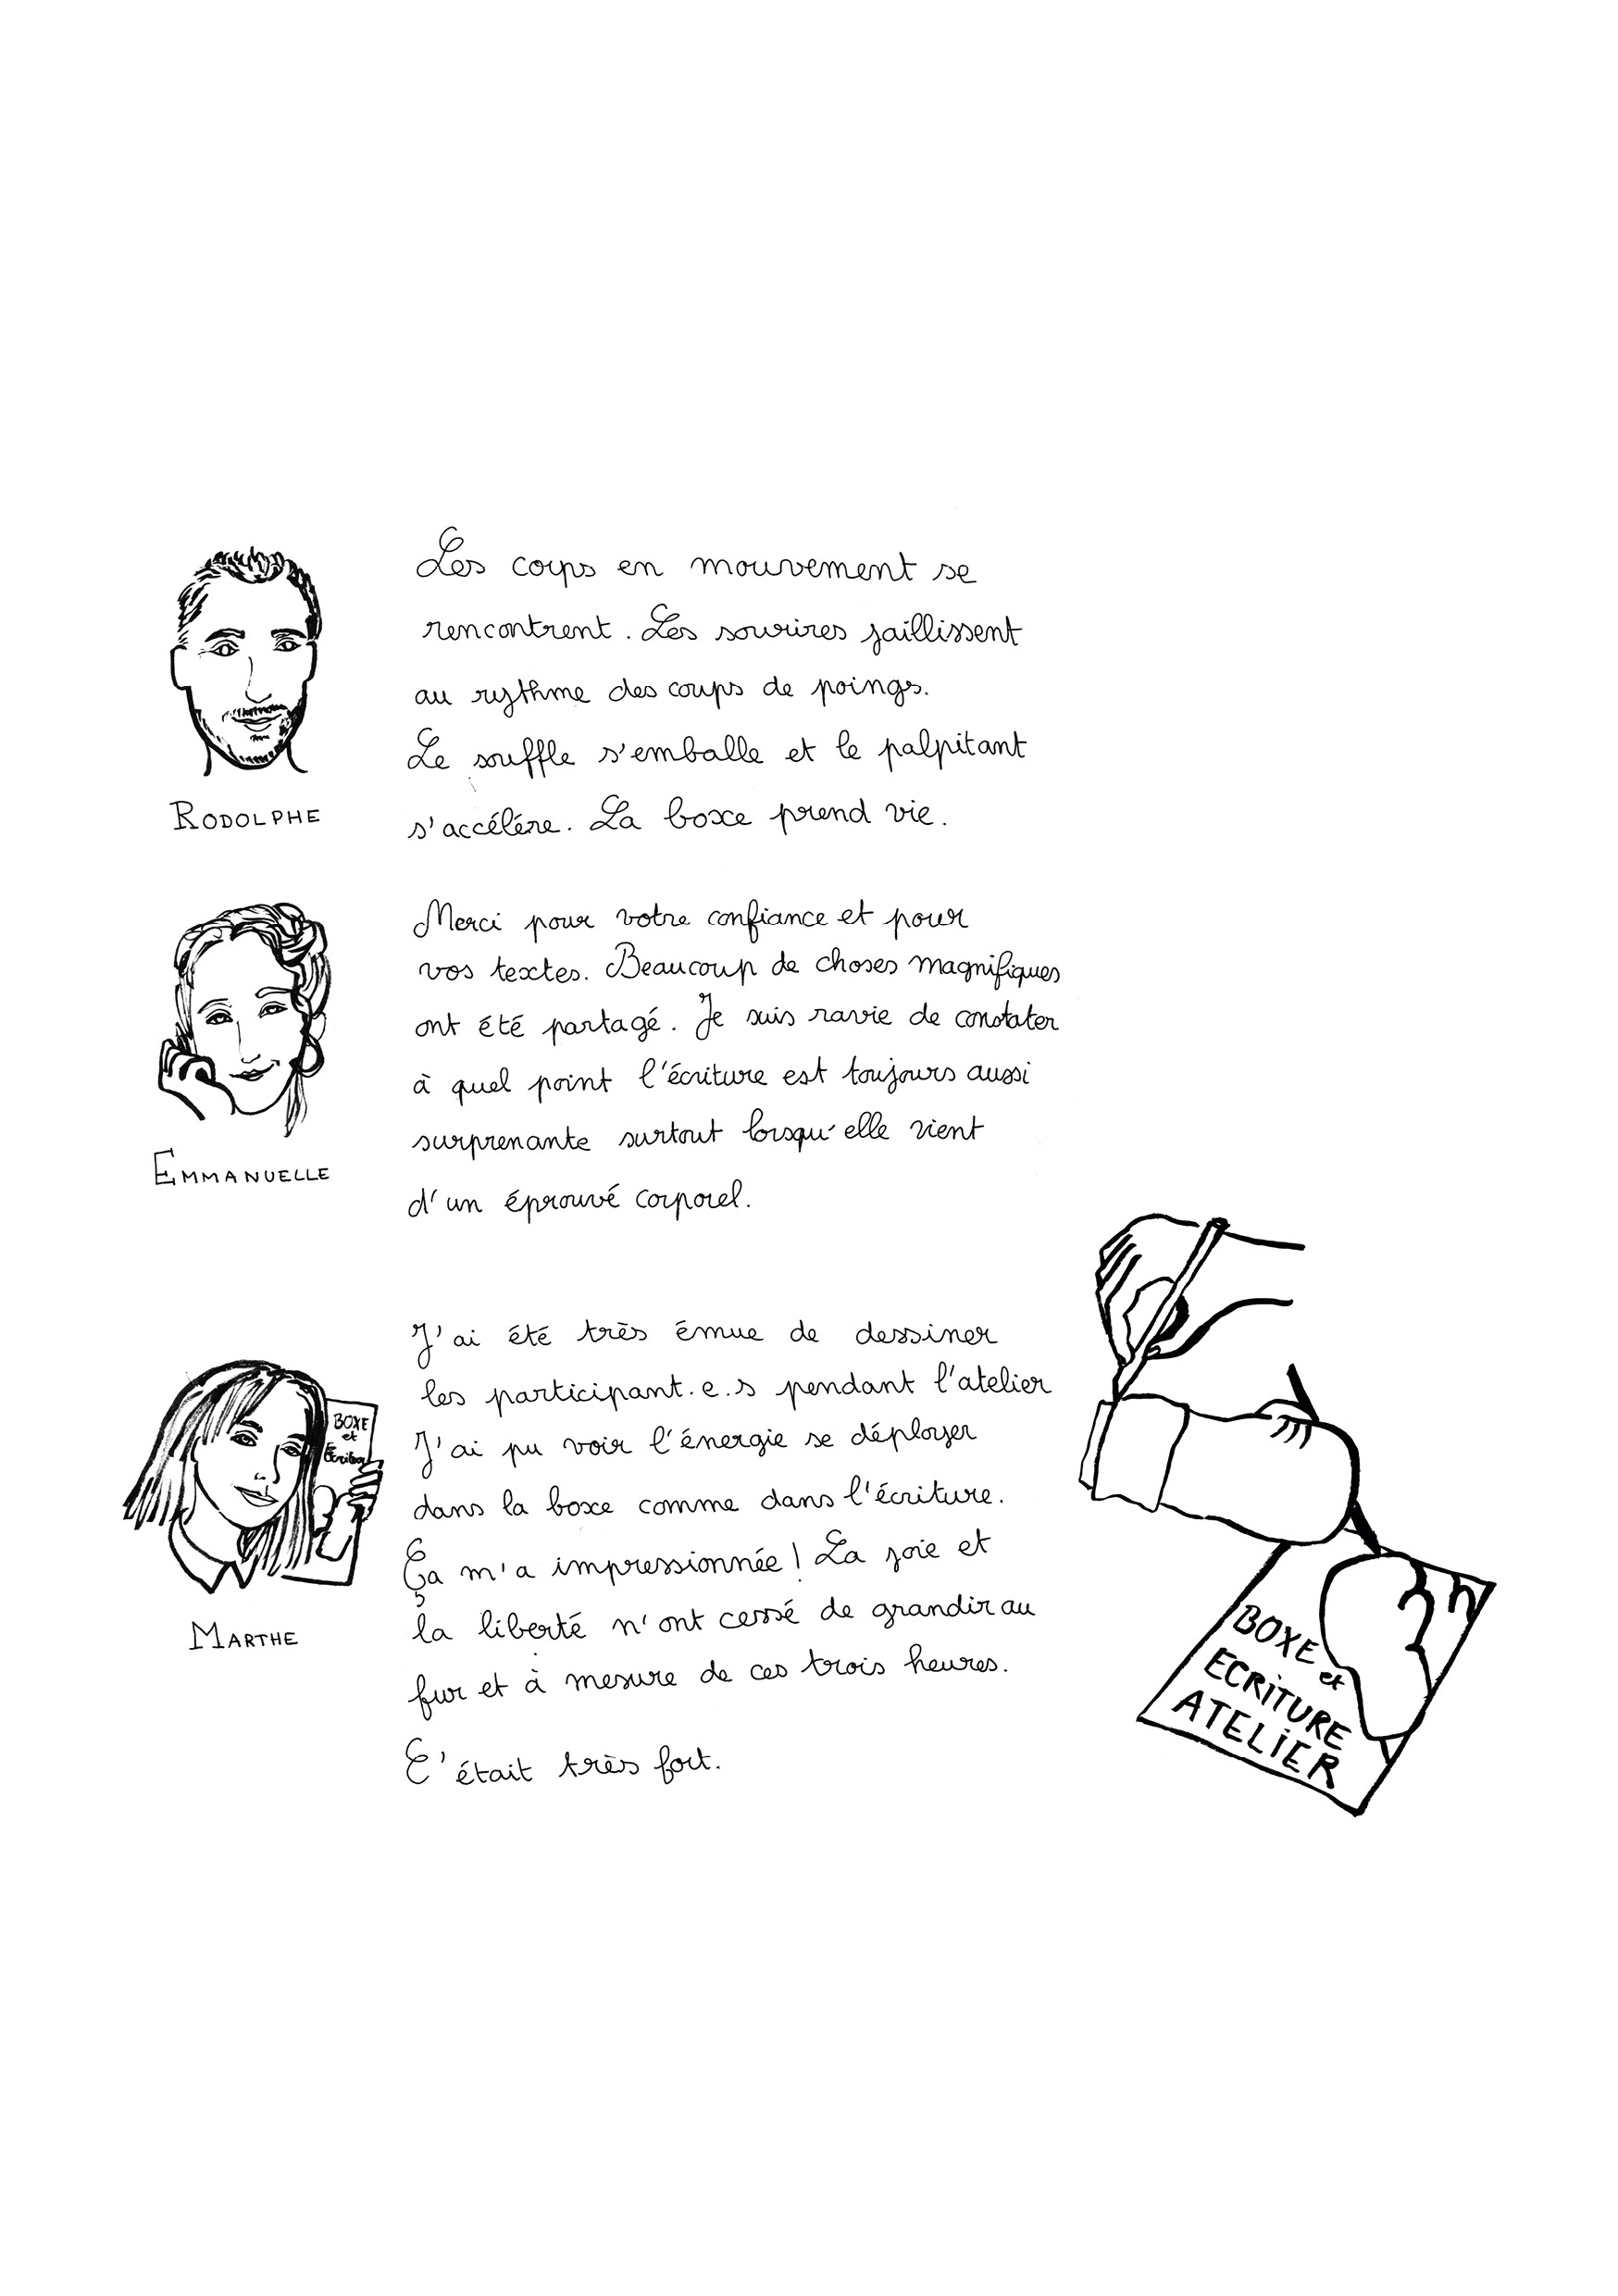 Les corps en mouvement se
rencontrent. Les sourires jaillissent
au rythme des coups de poings.
Le souffle s'emballe et le palpitant
s'accélére. La boxe prend vie.
RODOLPHE
Merci pour votre confiance et pour
vos textes. Beaucoup de choses magnifiques
ont été partagé. Je suis ravie de constater
à quel point l'écriture est toujours aussi
surprenante surtout lorsqu'elle vient
d'un éprouvé corporel.
EMMANUELLE
J'ai été très émue de dessiner
les participant.e.s pendant l'atelier
J'ai pu voir l'énergie se déployer
dans la boxe comme dans l'écriture.
Ça m'a impressionnée ! La joie et
la liberté n'ont cessé de grandir au
fur et à mesure de ces trois heures.
C'était très fort.
BOXE
et
Écriture
MARTHE
BOXE
et
ECRITURE
ATELIER